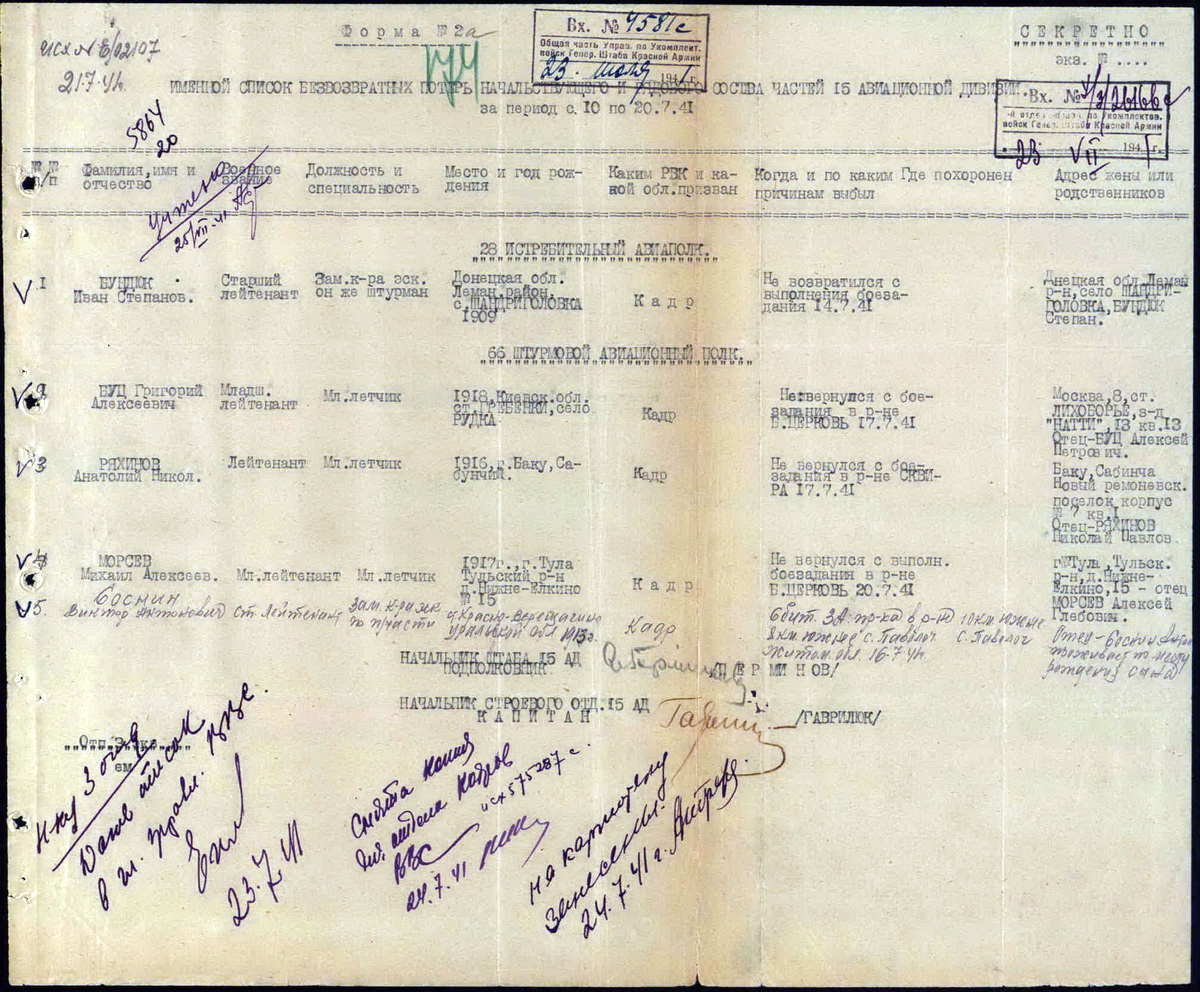 Форма № 2а
СЕКРЕТНО
экз. № ....
Исх № 6/02107
21.7.41.
174
Вх. № 4581с
Общая часть Управ. по Укомплект.
войск Генер. Штаба Красной Армии
23. июля 1941 г.
ИМЕННОЙ СПИСОК БЕЗВОЗВРАТНЫХ ПОТЕРЬ НАЧАЛЬСТВУЮЩЕГО И РЯДОВОГО СОСТАВА ЧАСТЕЙ 15 АВИАЦИОННОЙ ДИВИЗИИ.
за период с 10 по 20.7.41
Вх. №
войск Генер. Штаба Красной Армии
23 VII 1941 г.
5864
20
учтено
25/VII-41
№ № п/п
Фамилия,имя и отчество
Военное звание
Должность и специальность
Место и год рождения
Каким РВК и какой обл.призван
Когда и по каким причинам выбыл
Где похоронен
Адрес жены или родственников
28 ИСТРЕБИТЕЛЬНЫЙ АВИАПОЛК.
1
БУНДЮК
Иван Степанов.
Старший
лейтенант
Зам.к-ра эск.
он же штурман
Донецкая обл.
Леман.район,
с.ШАНДРИГОЛОВКА
1909
Кадр
Не возвратился с
выполнения боеза-
дания 14.7.41
Днецкая обл.Леман
р-н,село ШАНДРИ-
ГОЛОВКА,БУНДЮК
Степан.
66 ШТУРМОВОЙ АВИАЦИОННЫЙ ПОЛК.
2
БУЦ Григорий
Алексеевич
Младш.
лейтенант
Мл.летчик
1918,Киевск.обл.
ст.ГРЕБЕНКИ,село
РУДКА
Кадр
Не вернулся с бое-
задания в р-не
Б.ЦЕРКОВЬ 17.7.41
Москва,8,ст.
ЛИХОБОРЬЕ,з-д
"НАТТИ",13 кв.13
Отец-БУЦ Алексей
Петрович.
3
РЯХИНОВ
Анатолий Никол.
Лейтенант
Мл.летчик
1916,г.Баку,Са-
бунчий.
Кадр
Не вернулся с бое-
задания в р-не СКВИ-
РА 17.7.41
Баку,Сабинча
Новый ремоневск.
поселок корпус
№ 7 кв.1
Отец-РЯХИНОВ
Николай Павлов.
4
МОРСЕВ
Михаил Алексеев.
Мл.лейтенант
Мл.летчик
1917г.,г.Тула
Тульский р-н
д.Нижне-Елкино
№ 15
Кадр
Не вернулся с выполн.
боезадания в р-не
Б.ЦЕРКОВЬ 20.7.41
г.Тула,Тульск.
р-н,д.Нижне-
Елкино,15 - отец
МОРСЕВ Алексей
Глебович.
5.
Боснин
Виктор Антонович
Ст. Лейтенант
Зам. к-ра эск
по п/части
с.Красно-Верещагино
Уральской обл 1913г.
Кадр
Сбит ЗА пр-ка в р-не 10км южнее
8км южнее с. Паволоч с. Паволоч
Житом. обл. 16.7.41.
Отец - Боснин Антон
проживает по месту
рождения сына
НАЧАЛЬНИК ШТАБА 15 АД
ПОДПОЛКОВНИК
/ПЕРМИНОВ/
НАЧАЛЬНИК СТРОЕВОГО ОТД.15 АД
КАПИТАН
/ГАВРИЛЮК/
Отп.3 экз.
ем
Н-ку 3 отд
Дать список
в гл. управ. ВВС.
23.7.41
Снята копия
для отдела кадров
ВВС исх 575287с.
24.7.41
На картотеку
занесены.
24.7.41г.